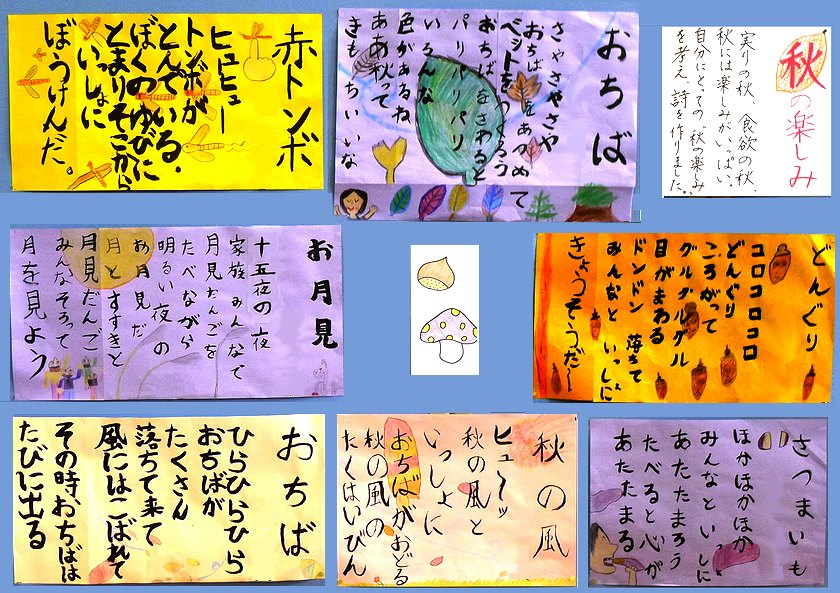 秋の楽しみ
実りの秋、食欲の秋、
秋には楽しみがいっぱい。
自分にとっての“秋の楽しみ”
を考え、詩を作りました。
おちば
さやさやさや
おちばをあつめて
ベットをつくろう
おちばをさわると
パリパリパリ
いろんな
色があるね
ああ秋って
きもちいいな
赤トンボ
ヒュヒュー
トンボが
とんでいる、
ぼくのゆびに
とまりそこから
いっしょに
ぼうけんだ。
どんぐり
コロコロコロ
どんぐり
ころがって
グルグルグル
目がまわる
ドンドン落ちて
みんなといっしょに
きょうそうだ〜
お月見
十五夜の夜
家族みんなで
月見だんごを
たべながら
明るい夜の
お月見だ
月とすすきと
月見だんご
みんなそろって
月を見よう
さつまいも
ほかほかほか
みんなといっしょに
あたたまろう
たべると心が
あたたまる
秋の風
ヒューッ
秋の風と
いっしょに
おちばがおどる
秋の風の
たくはいびん
おちば
ひらひらひら
おちばが
たくさん
落ちて来て
風にはこばれて
その時おちばは
たびに出る